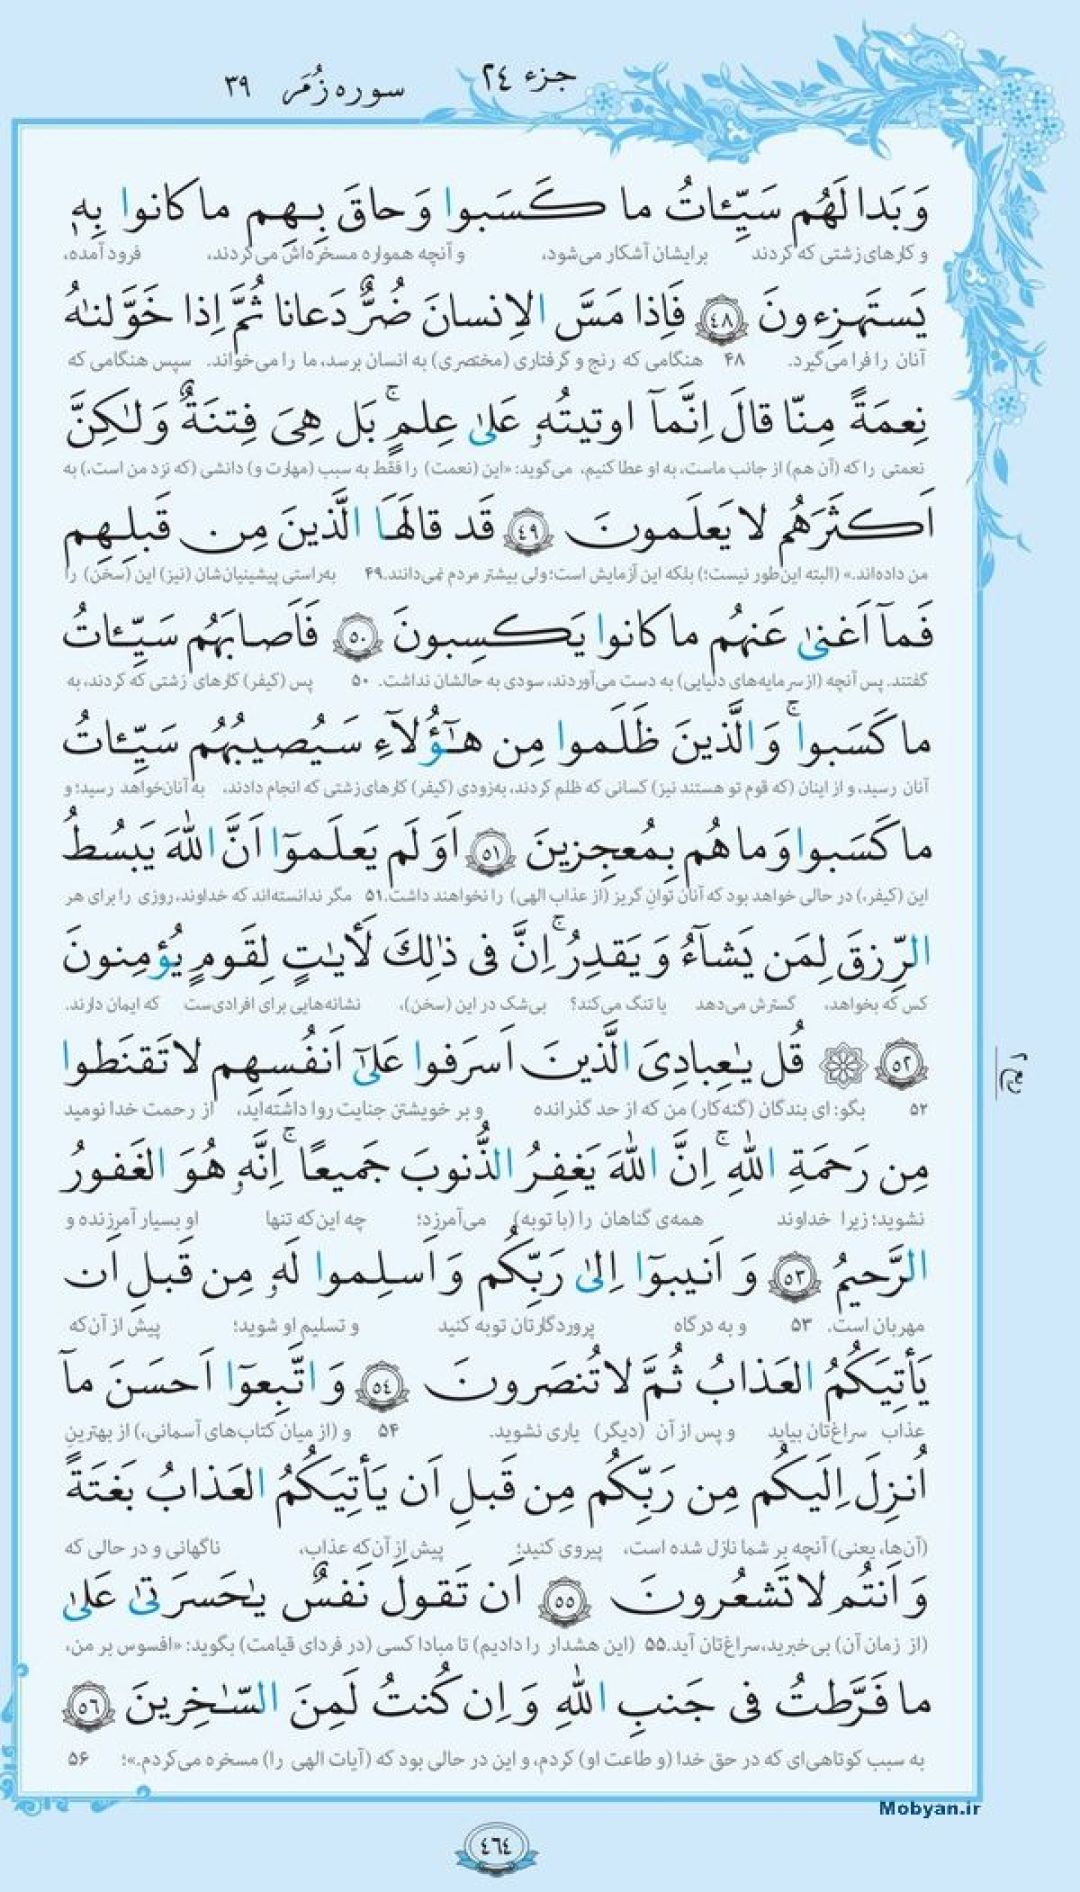 جزء ٢٤
سوره زُمَر ٣٩
وَ بَدا لَهُم سَيِّـٔاتُ ما كَسَبوا وَ حاقَ بِهِم ما كانوا بِهٖ
و کارهای زشتی که کردند برایشان آشکار می‌شود، و آنچه همواره مسخره‌اش می‌کردند، فرود آمده،
يَستَهزِءونَ ٤٨ فَاِذا مَسَّ الاِنسانَ ضُرٌّ دَعانا ثُمَّ اِذا خَوَّلنـٰهُ
آنان را فرا می‌گیرد. ۴۸ هنگامی که رنج و گرفتاری (مختصری) به انسان برسد، ما را می‌خواند. سپس هنگامی که
نِعمَةً مِنّا قالَ اِنَّمآ اوتيتُهٗ عَلىٰ عِلمٍ ۚ بَل هِىَ فِتنَةٌ وَ لـٰكِنَّ
نعمتی را که (آن هم) از جانب ماست، به او عطا کنیم، می‌گوید: «این (نعمت) را فقط به سبب (مهارت و) دانشی (که نزد من است،) به
اَكثَرَهُم لا يَعلَمونَ ٤٩ قَد قالَهَا الَّذينَ مِن قَبلِهِم
من داده‌اند.» (البته این‌طور نیست؛) بلکه این آزمایش است؛ ولی بیشتر مردم نمی‌دانند. ۴۹ به‌راستی پیشینیان‌شان (نیز) این (سخن) را
فَمآ اَغنىٰ عَنهُم ما كانوا يَكسِبونَ ٥٠ فَاَصابَهُم سَيِّـٔاتُ
گفتند. پس آنچه (از سرمایه‌های دنیایی) به دست می‌آوردند، سودی به حالشان نداشت. ۵۰ پس (کیفر) کارهای زشتی که کردند، به
ما كَسَبوا ۚ وَ الَّذينَ ظَلَموا مِن هـٰٓؤُلآءِ سَيُصيبُهُم سَيِّـٔاتُ
آنان رسید، و از اینان (که قوم تو هستند نیز) کسانی که ظلم کردند، به‌زودی (کیفر) کارهای زشتی که انجام دادند، به آنان خواهد رسید؛ و
ما كَسَبوا وَ ما هُم بِمُعجِزينَ ٥١ اَوَ لَم يَعلَموٓا اَنَّ اللهَ يَبسُطُ
این (کیفر،) در حالی خواهد بود که آنان توانِ گریز (از عذاب الهی) را نخواهند داشت. ۵۱ مگر ندانسته‌اند که خداوند، روزی را برای هر
الرِّزقَ لِمَن يَشآءُ وَ يَقدِرُ ۚ اِنَّ فى ذٰلِكَ لَأيـٰتٍ لِقَومٍ يُؤمِنونَ
کس که بخواهد، گسترش می‌دهد یا تنگ می‌کند؟ بی‌شک در این (سخن)، نشانه‌هایی برای افرادی‌ست که ایمان دارند.
٥٢ قُل يـٰعِبادِىَ الَّذينَ اَسرَفوا عَلىٰٓ اَنفُسِهِم لا تَقنَطوا
۵۲ بگو: ای بندگان (گنه‌کار) من که از حد گذرانده و بر خویشتن جنایت روا داشته‌اید، از رحمت خدا نومید
مِن رَحمَةِ اللهِ ۚ اِنَّ اللهَ يَغفِرُ الذُّنوبَ جَميعًا ۚ اِنَّهٗ هُوَ الغَفورُ
نشوید؛ زیرا خداوند همه‌ی گناهان را (با توبه) می‌آمرزد؛ چه این‌که تنها او بسیار آمرزنده و
الرَّحيمُ ٥٣ وَ اَنيبوٓا اِلىٰ رَبِّكُم وَ اَسلِموا لَهٗ مِن قَبلِ اَن
مهربان است. ۵۳ و به درگاه پروردگارتان توبه کنید و تسلیم او شوید؛ پیش از آن‌که
يَأتِيَكُمُ العَذابُ ثُمَّ لا تُنصَرونَ ٥٤ وَ اتَّبِعوٓا اَحسَنَ مآ
عذاب سراغ‌تان بیاید و پس از آن (دیگر) یاری نشوید. ۵۴ و (از میان کتاب‌های آسمانی،) از بهترینِ
اُنزِلَ اِلَيكُم مِن رَبِّكُم مِن قَبلِ اَن يَأتِيَكُمُ العَذابُ بَغتَةً
(آن‌ها، یعنی) آنچه بر شما نازل شده است، پیروی کنید؛ پیش از آن‌که عذاب، ناگهانی و در حالی که
وَ اَنتُم لا تَشعُرونَ ٥٥ اَن تَقولَ نَفسٌ يـٰحَسرَتىٰ عَلىٰ
(از زمان آن) بی‌خبرید، سراغ‌تان آید. ۵۵ (این هشدار را دادیم) تا مبادا کسی (در فردای قیامت) بگوید: «افسوس بر من،
ما فَرَّطتُ فى جَنبِ اللهِ وَ اِن كُنتُ لَمِنَ السّـٰخِرينَ ٥٦
به سبب کوتاهی‌ای که در حق خدا (و طاعت او) کردم، و این در حالی بود که (آیات الهی را) مسخره می‌کردم.»؛ ۵۶
Mobyan.ir
٤٦٤